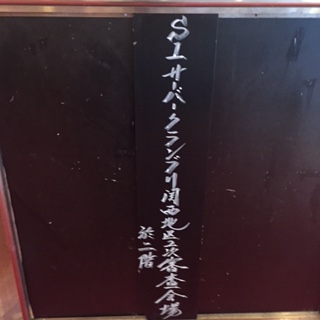 S1サーバーグランプリ関西地区二次審査会場
於二階